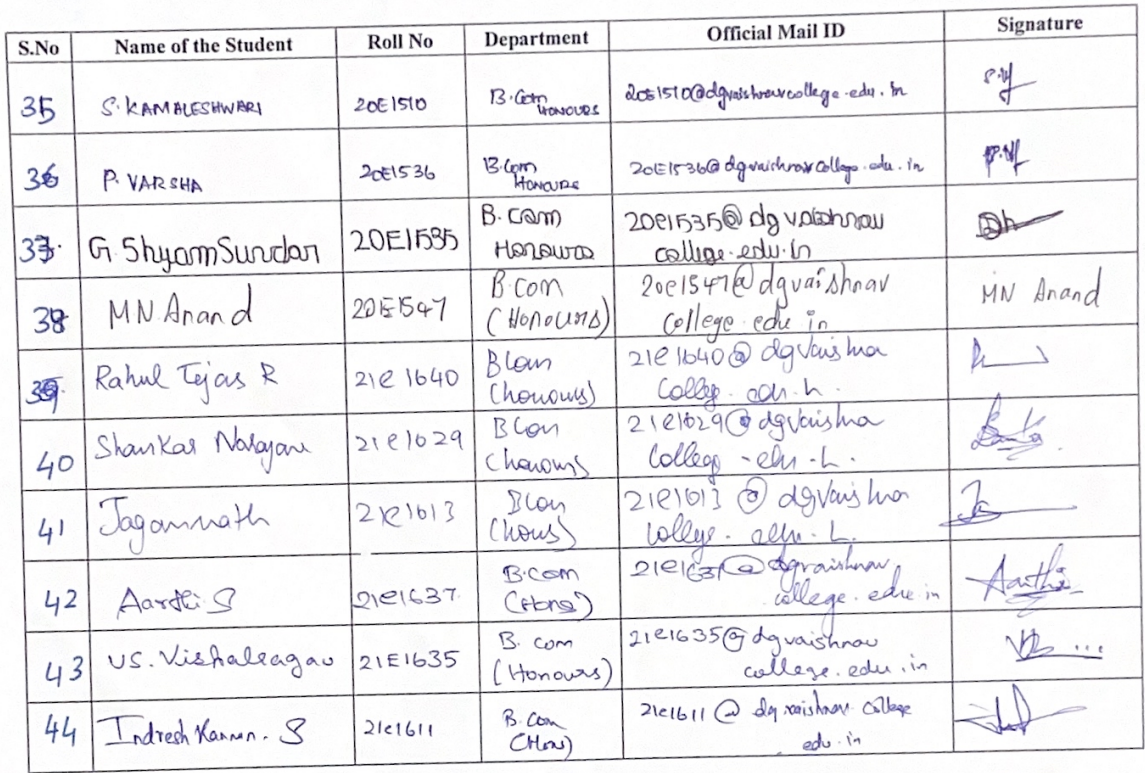 S.No Name of the Student Roll No Department Official Mail ID Signature
35 S. KAMALESHWARI 20E1510 B.Com HONOURS 20E1510@dgvaishnavcollege.edu.in
36 P. VARSHA 20E1536 B.Com HONOURS 20E1536@dgvaishnavcollege.edu.in
37. G. ShyamSundar 20E1535 B.Com Honours 20e1535@dgvaishnav
college.edu.in
38 MN Anand 20E1547 B.Com (Honours) 20e1547@dgvaishnav MN Anand
college.edu.in
39 Rahul Tejas R 21e1640 BCom (honours) 21e1640@dgvaishna
40 Shankar Narayan 21e1029 BCom (honours) 21e1029@dgvaishna
41 Jagannath 21e1013 BCom (hons) 21e1013@dgvaishna
42 Aarthi S 21e1637 B.Com (Hons) 21e1637@dgvaishnav Aarthi
college.edu.in
43 VS. Vishalragav 21E1635 B. com (Honours) 21e1635@dgvaishnav
college.edu.in
44 Indresh Kannan. S 21e1611 B.Com (Hon) 21e1611@dgvaishnav college
edu.in